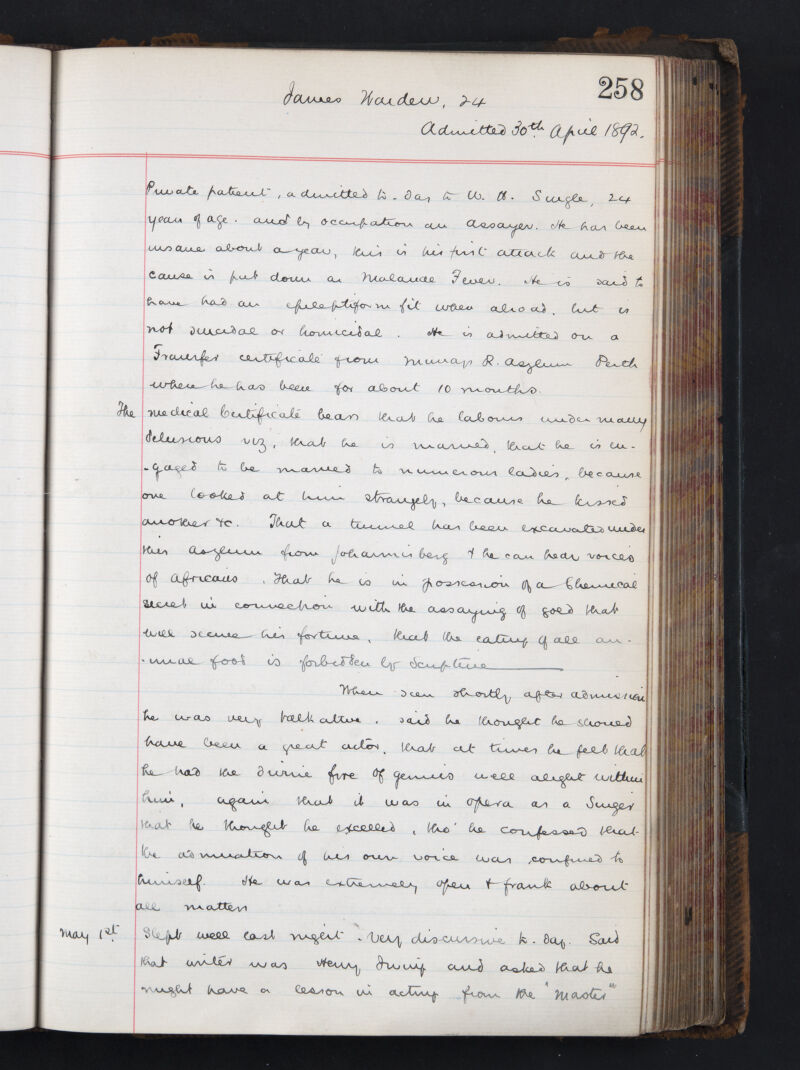 258
James Warden, 24
Admitted 30th April 1892.
Private patient, admitted to-day to W. H. Single, 24
years of age. and by occupation an assayer. He has been
insane about a year, this is his first attack and the
cause is put down as Malarial Fever. He is said to
have had an epileptiform fit when abroad, but is
not suicidal or homicidal. He is admitted on a
Transfer certificate from Murray's R. Asylum Perth
where he has been for about 10 months.
The medical Certificate bears that he labours under many
delusions viz, that he is married, that he is en-
-gaged to be married to numerous ladies, because
one looked at him strangely, because he kissed
another &c. That a tunnel has been excavated under
this asylum from Johannisberg & he can hear voices
of Africans. That he is in possession of a Chemical
secret in connection with the assaying of gold that
will secure his fortune, that the eating of all an-
-imal food is forbidden by Scripture
When seen shortly after admission
he was very talkative. said he thought he should
have been a great actor, that at times he felt that
he had the divine fire of genius well alight within
him, again that it was in opera as a Singer
that he thought he excelled, tho' he confessed that
the admiration of his own voice was confined to
himself. He was extremely open & frank about
all matters
May 1st. Slept well last night. Very discursive to-day. Said
that writer was Henry Irving and asked that he
might have a lesson in acting from the "Master"